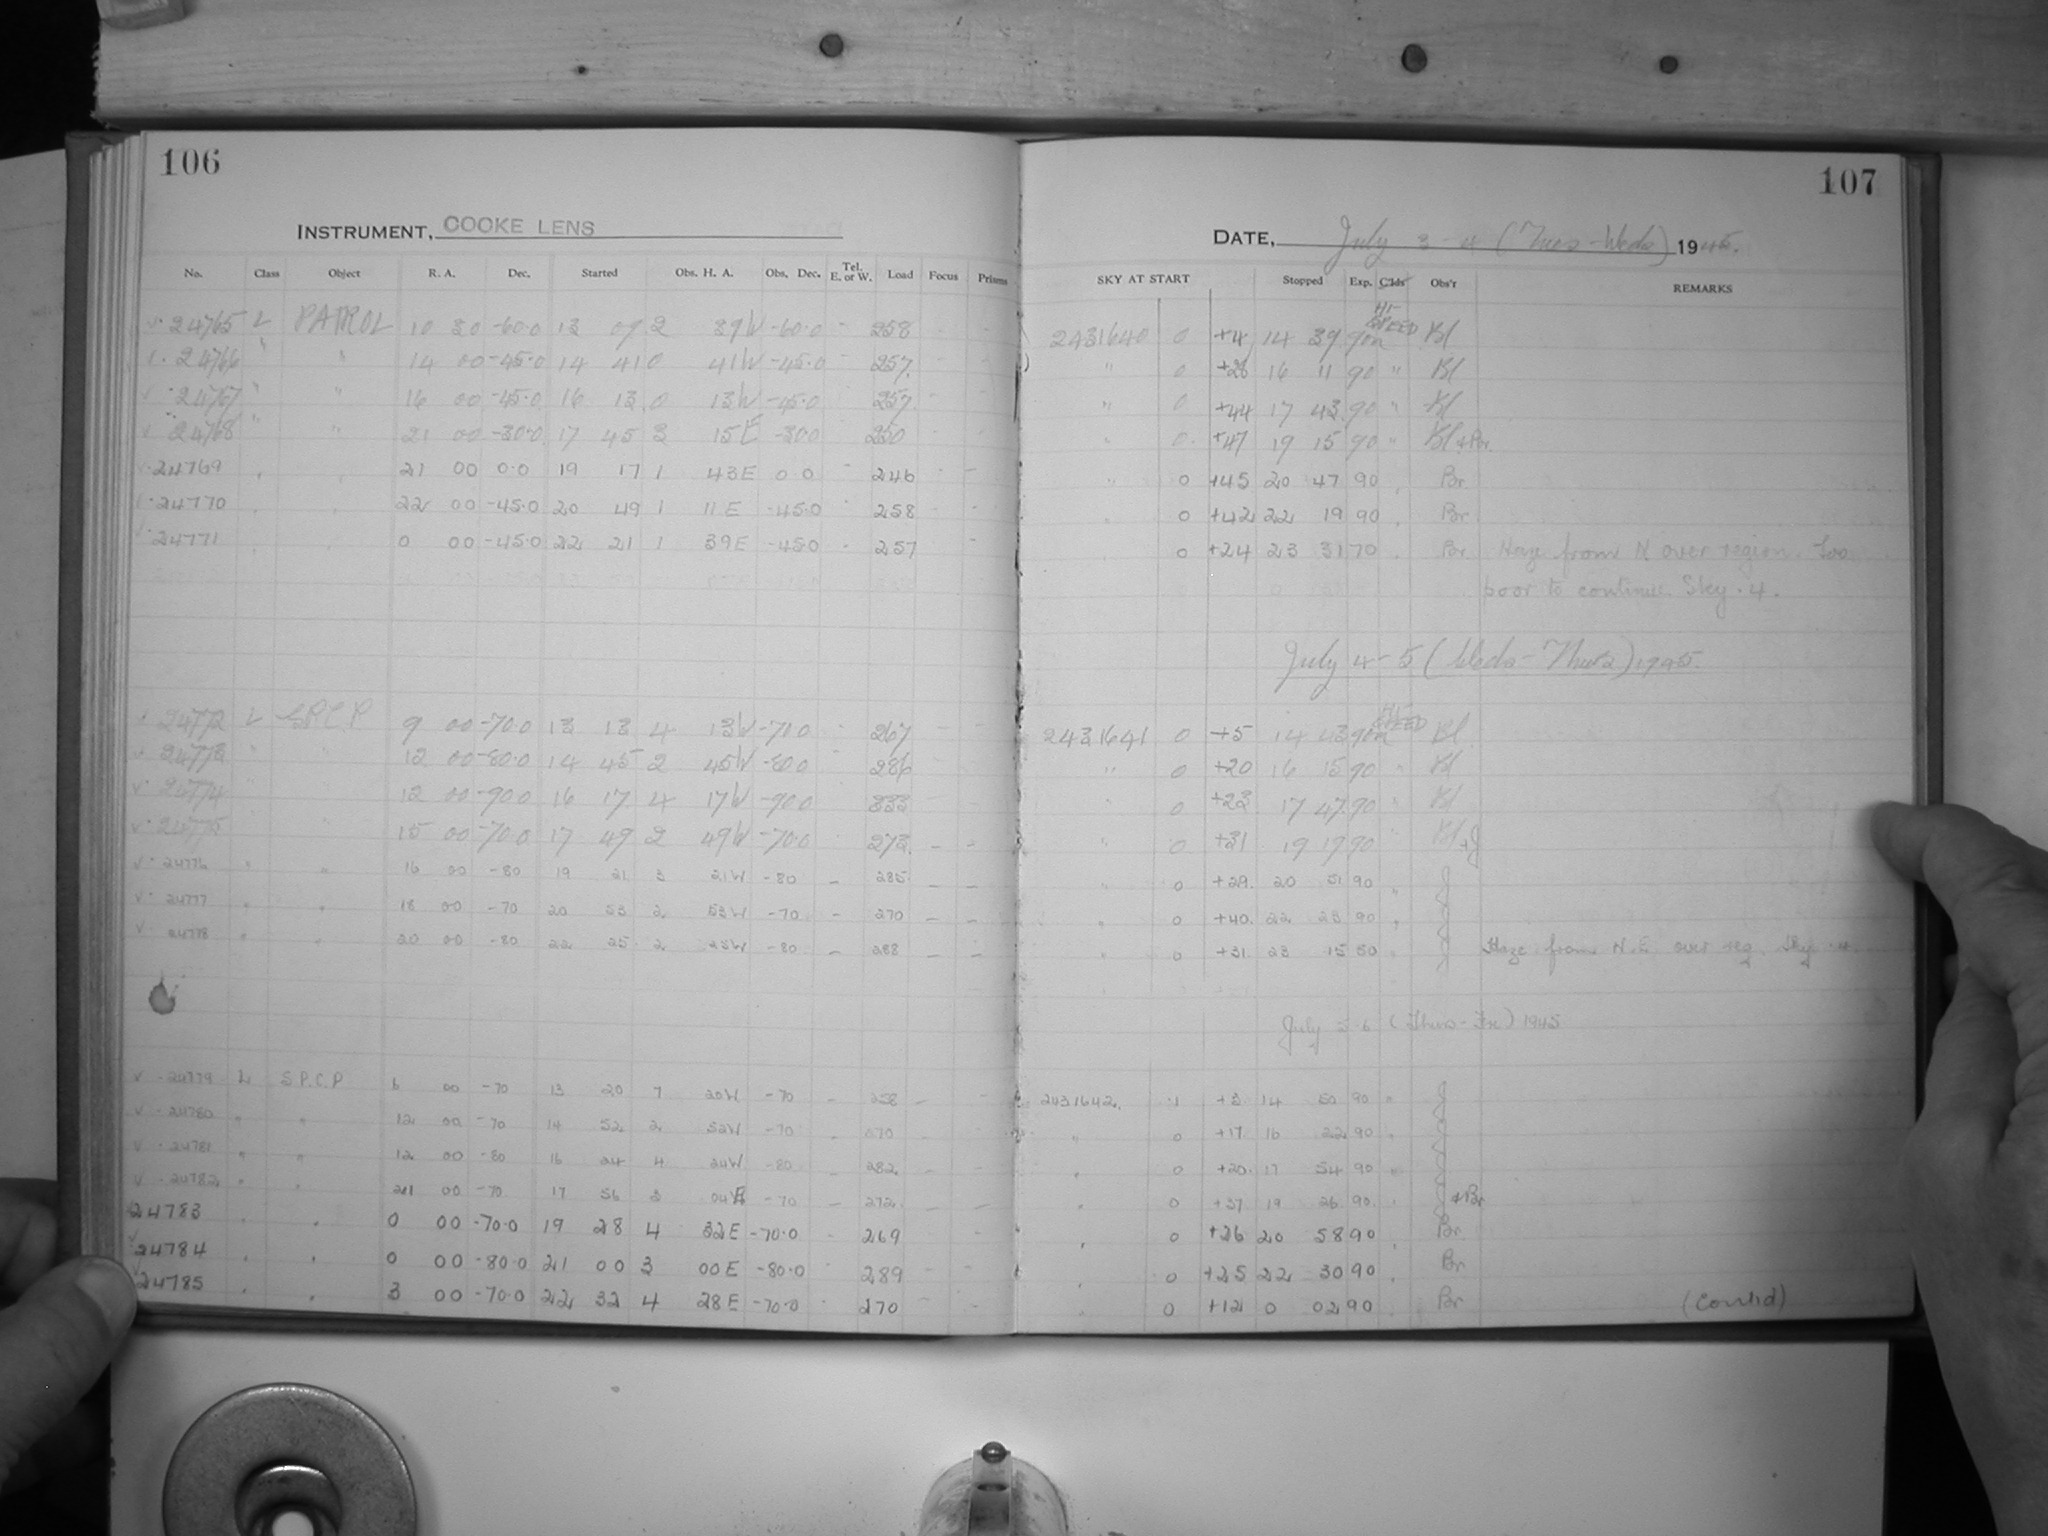 106
INSTRUMENT, COOKE LENS
No. Class Object R. A. Dec. Started Obs. H. A. Obs. Dec. Tel. E. or W. Load Focus Prisms
24765 L PATROL 10 30 -60.0 13 09 2 39W -60.0 - 258
24766 " " 14 00 -45.0 14 41 0 41W -45.0 - 257.
24767 " " 16 00 -45.0 16 13 0 13W -45.0 257.
24768 " " 21 00 -30.0 17 45 3 15E -30.0 250
24769 21 00 0.0 19 17 1 43E 0.0 - 246
24770 22 00 -45.0 20 49 1 11E -45.0 258
24771 0 00 -45.0 22 21 1 39E -45.0 - 257
24772 L S.P.C.P 9 00 -70.0 13 13 4 13W -70.0 267
24773 " " 12 00 -80.0 14 45 2 45W -80.0 286
24774 " " 12 00 -90.0 16 17 4 17W -90.0 333
24775 15 00 -70.0 17 49 2 49W -70.0 273. - -
24776 " " 16 00 -80 19 21 3 21W -80 - 285 - -
24777 " " 18 00 -70 20 53 2 53W -70 - 270 - -
24778 " " 20 00 -80 22 25 2 25W -80 - 288 - -
24779 L S.P.C.P 6 00 -70 13 20 7 20W -70 - 258 -
24780 " " 12 00 -70 14 52 2 52W -70 - 270 -
24781 " " 12 00 -80 16 24 4 24W -80 - 282 -
24782 " " 21 00 -70 17 56 3 04E -70 - 272. - -
24783 0 00 -70.0 19 28 4 32E -70.0 269
24784 0 00 -80.0 21 00 3 00E -80.0 289
24785 3 00 -70.0 22 32 4 28E -70.0 270
107
DATE, July 3-4 (Tues-Weds) 1945.
SKY AT START Stopped Exp. Clds Obs'r REMARKS
2431640 0 +4 14 39 90m HI-SPEED Bl
" 0 +28 16 11 90 " Bl
" 0 +44 17 43 90 " Bl
0 +47 19 15 90 " Bl+Br.
0 +45 20 47 90 Br
0 +42 22 19 90 Br
0 +24 23 31 70 Br Haze from N over region. Too
poor to continue. Sky .4.
July 4-5 (Weds-Thurs) 1945.
2431641 0 +5 14 43 90m HI-SPEED Bl
" 0 +20 16 15 90 " Bl
" 0 +23 17 47 90 " Bl
" 0 +31 19 19 90 Bl+J
" 0 +29. 20 51 90 " J
" 0 +40. 22 23 90 " J
" 0 +31 23 15 50 " J Haze from N.E. over reg. Sky .4.
July 5-6 (Thurs-Fri) 1945
2431642. .1 +3 14 50 90 " J
" 0 +17 16 22 90 J
" 0 +20. 17 54 90 J
" 0 +37 19 26 90. J+Br
0 +26 20 58 90 Br
0 +25 22 30 90 Br
0 +12 0 02 90 Br (Contd)